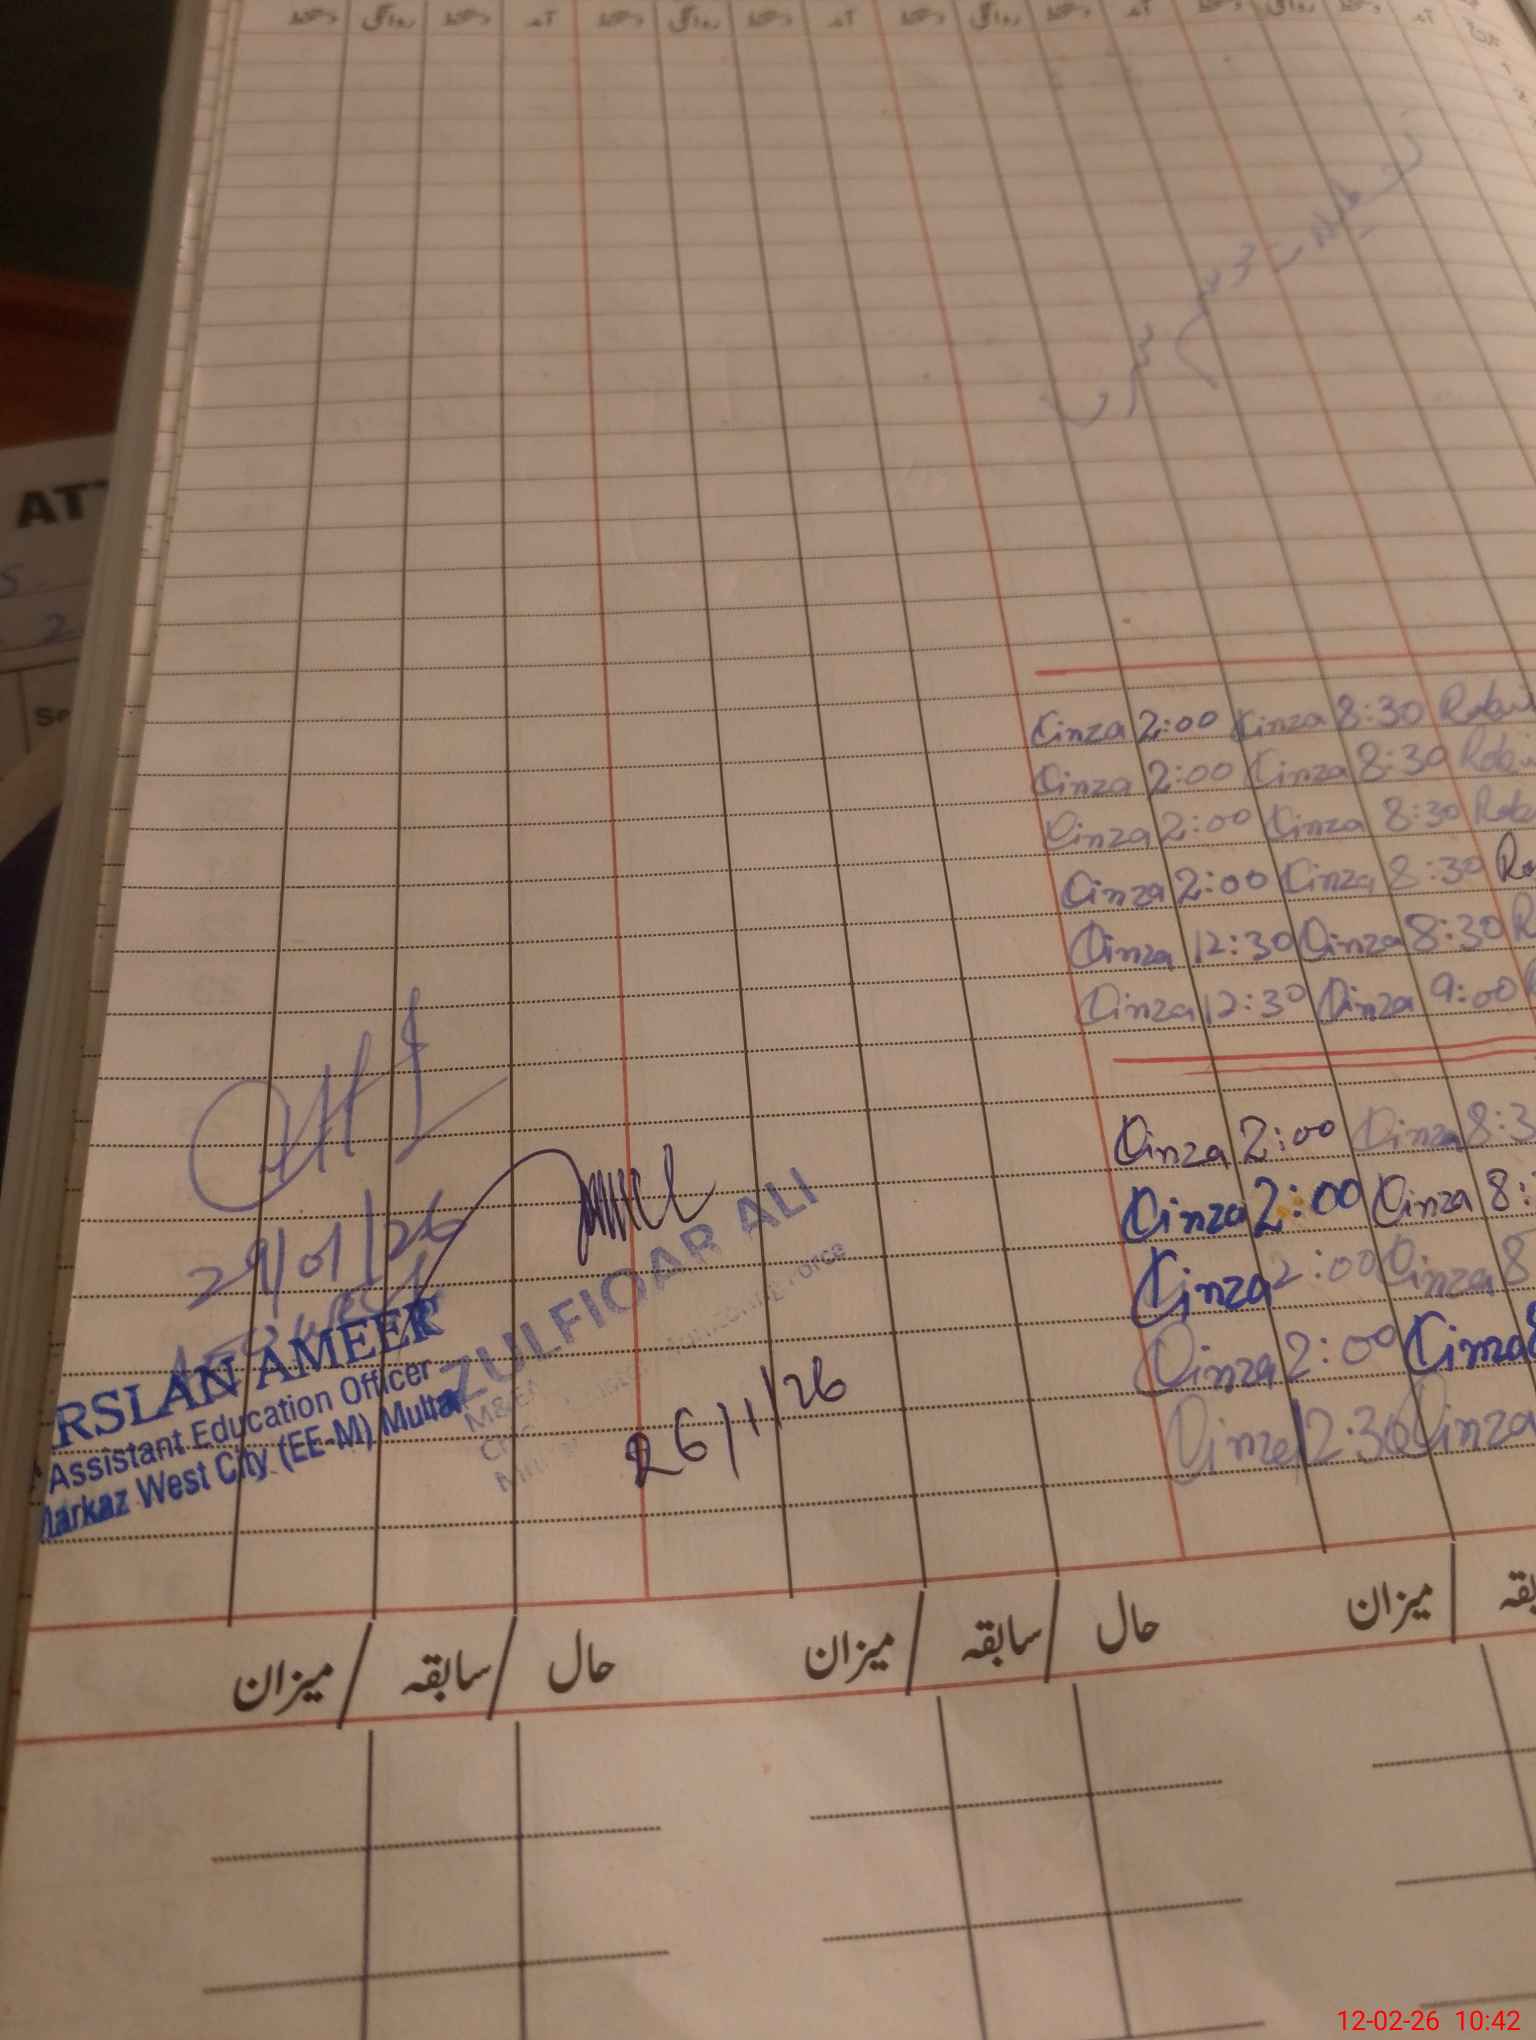 دستخط روانگی دستخط آمد دستخط روانگی دستخط آمد دستخط روانگی دستخط آمد دستخط روانگی دستخط آمد
AT
S
2
Se
Kinza 2:00 Kinza 8:30
Kinza 2:00 Kinza 8:30
Kinza 2:00 Kinza 8:30
Kinza 2:00 Kinza 8:30
Kinza 12:30 Kinza 8:30
Kinza 12:30 Kinza 9:00
Kinza 2:00 Kinza 8:3
Kinza 2:00 Kinza 8:
Kinza 2:00 Kinza 8
Kinza 2:00 Kinza 8
Kinza 12:30 Kinza
29/01/26
RSLAN AMEER
Assistant Education Officer
Markaz West City (EE-M) Multan
ZULFIQAR ALI
26/1/26
میزان / سابقہ / حال میزان / سابقہ / حال میزان
12-02-26 10:42